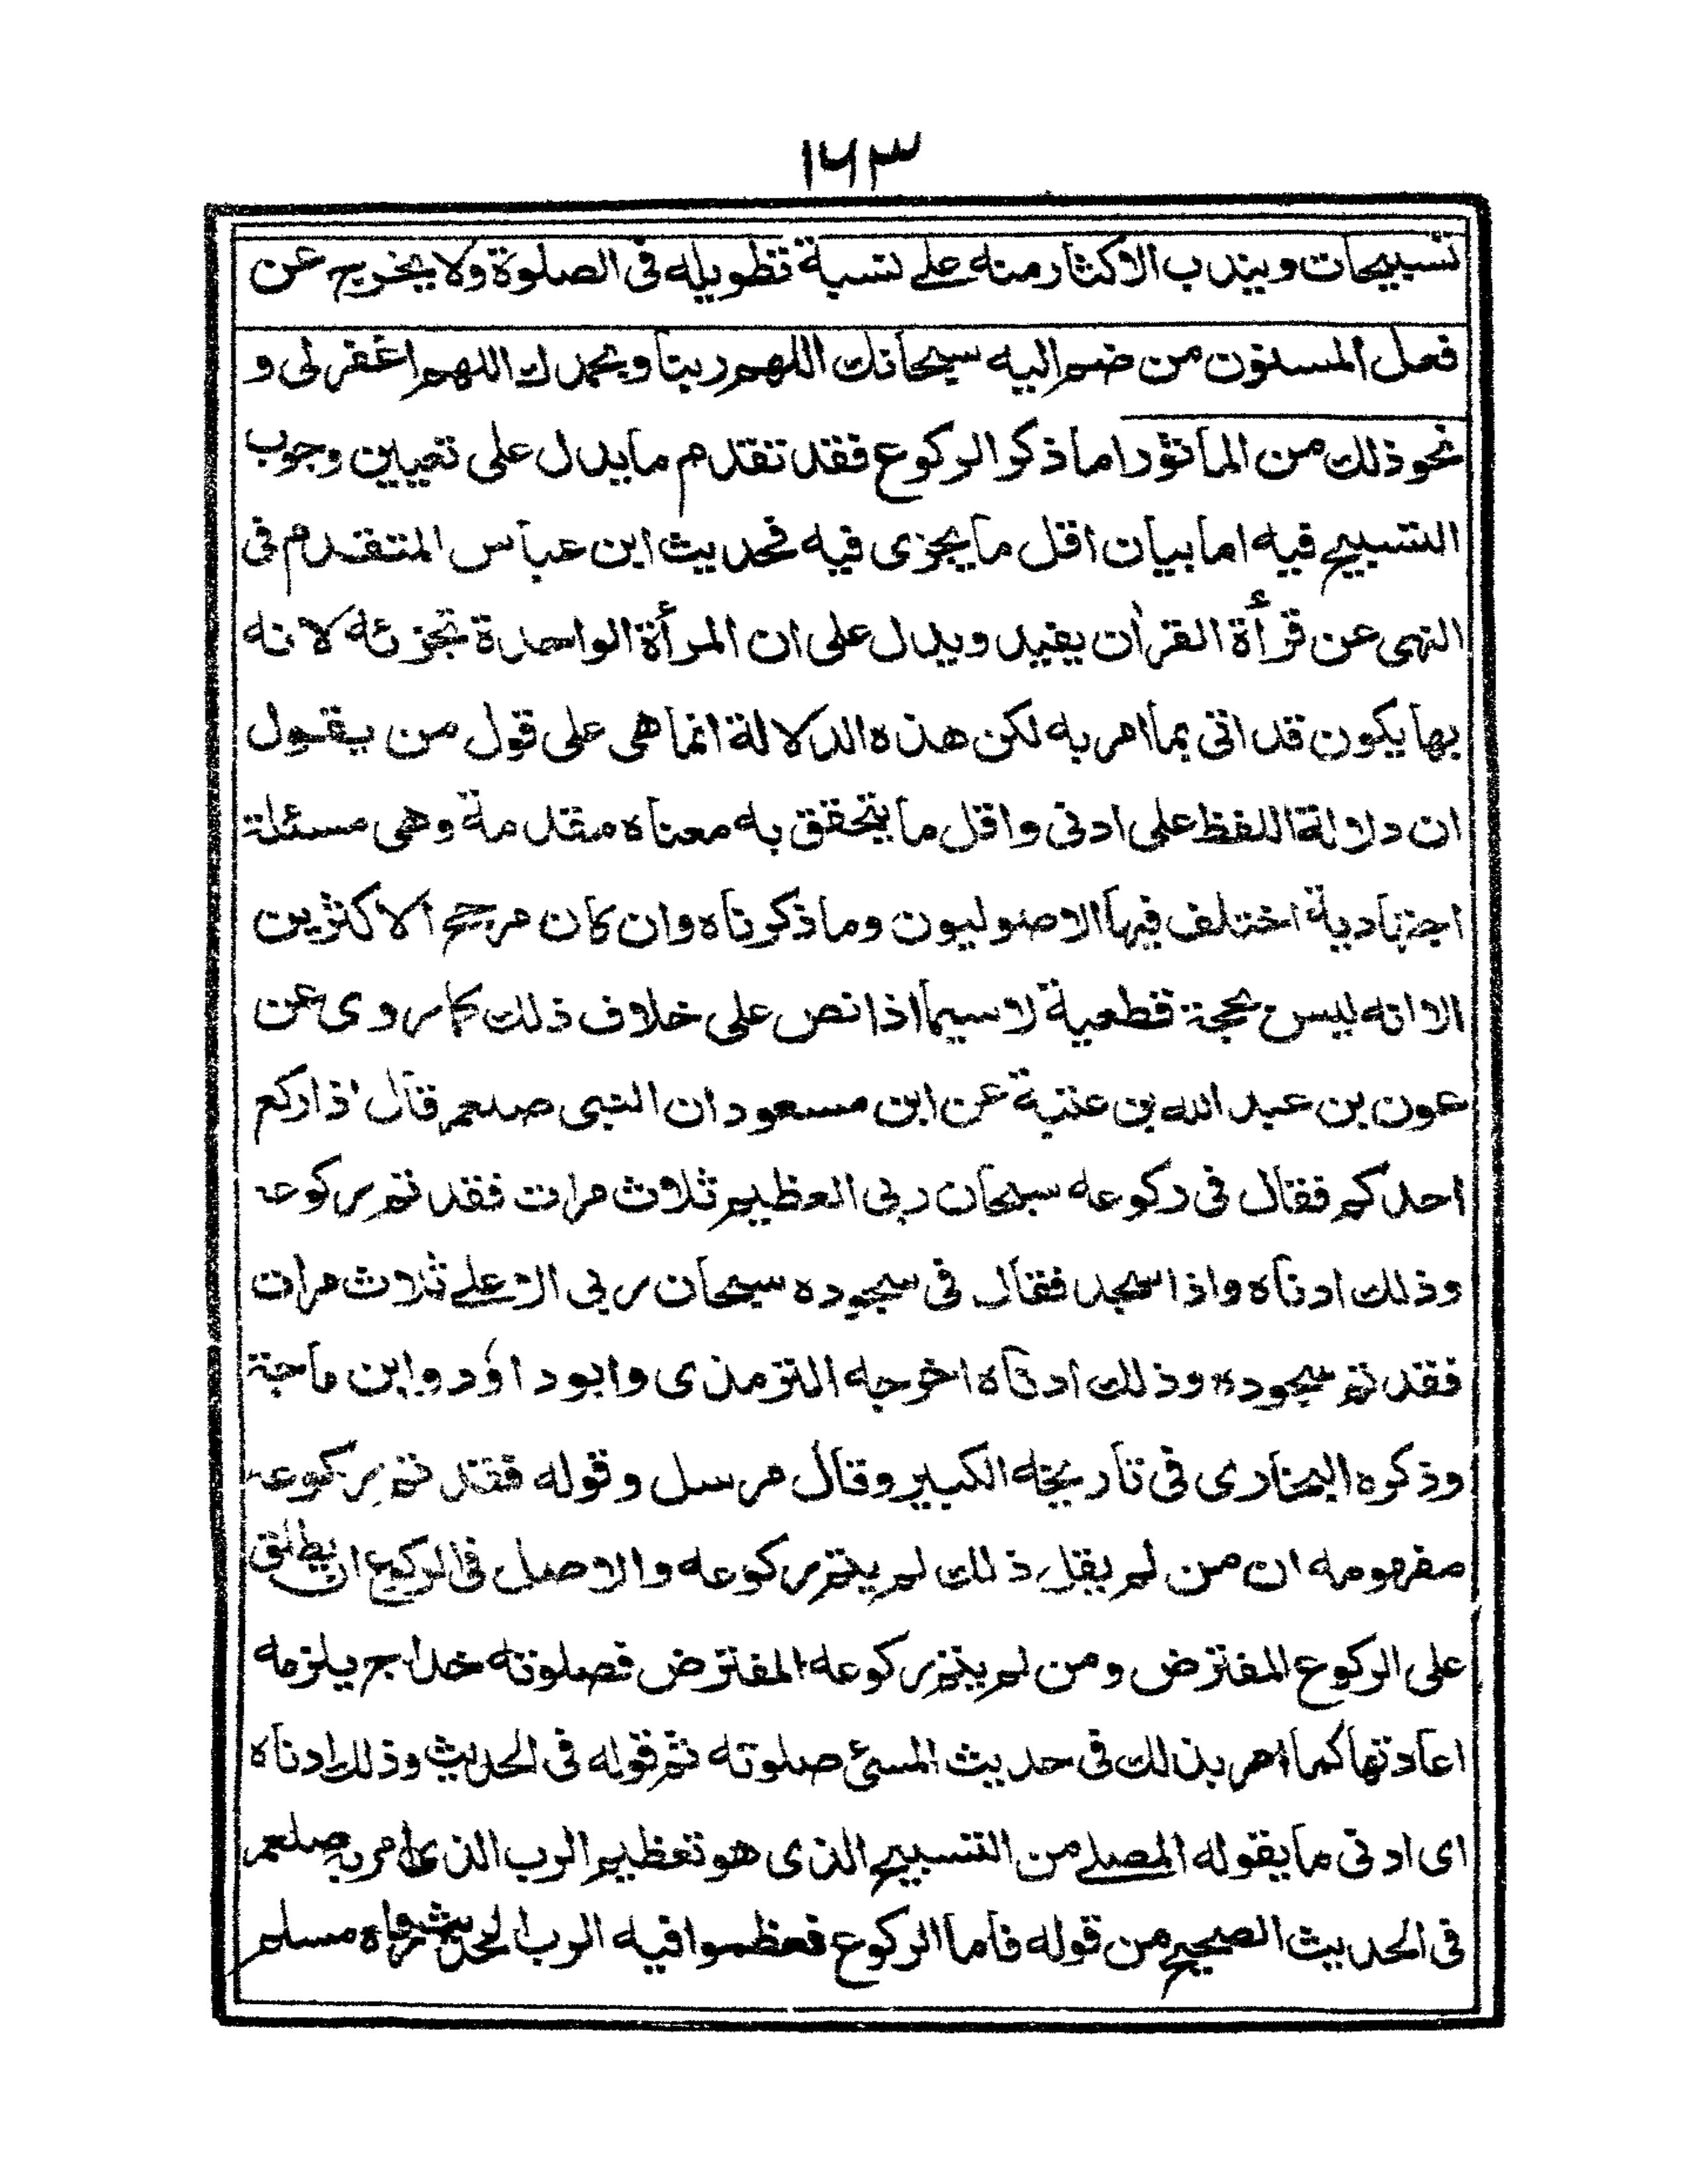 ١٦٣
تسبيحات ويندب الاكثار منه على نسبة تطويله فى الصلوة ولا يخرج عن
فعل المسنون من ضم اليه سبحانك اللهم ربنا وبحمدك اللهم اغفرلى و
نحو ذلك من المأثور اما ذكر الركوع فقد تقدم ما يدل على تعيين وجوب
التسبيح فيه اما بيان اقل ما يجزى فيه فحديث ابن عباس المتقدم فى
النهى عن قرأة القرأن يفيد ويدل على ان المرأة الواحدة تجزئه لانه
بها يكون قد اتى بما امر به لكن هذه الدلالة انما هى على قول من يقول
ان دلالة اللفظ على ادنى واقل ما يتحقق به معناه مقدمة وهى مسئلة
اجتهادية اختلف فيها الاصوليون وما ذكرناه وان كان مرجح الاكثرين
الا انه ليس بحجة قطعية لا سيما اذا نص على خلاف ذلك كما روى عن
عون بن عبد الله بن عتبة عن ابن مسعود ان النبى صلعم قال اذا ركع
احدكم فقال فى ركوعه سبحان ربى العظيم ثلاث مرات فقد تم ركوعه
وذلك ادناه واذا سجد فقال فى سجوده سبحان ربى الاعلى ثلاث مرات
فقد تم سجوده وذلك ادناه اخرجه الترمذى وابو داؤد وابن ماجة
وذكره البخارى فى تاريخه الكبير وقال مرسل وقوله فقد تم ركوعه
مفهومه ان من لم يقل ذلك لم يتم ركوعه والاصل فى الركوع ان يطلق
على الركوع المفترض ومن لم يتم ركوعه المفترض فصلوته خداج يلزمه
اعادتها كما امر بذلك فى حديث المسئ صلوته ثم قوله فى الحديث وذلك ادناه
اى ادنى ما يقوله المصلى من التسبيح الذى هو تعظيم الرب الذى امر به صلعم
فى الحديث الصحيح من قوله فأما الركوع فعظموا فيه الرب الحديث رواه مسلم